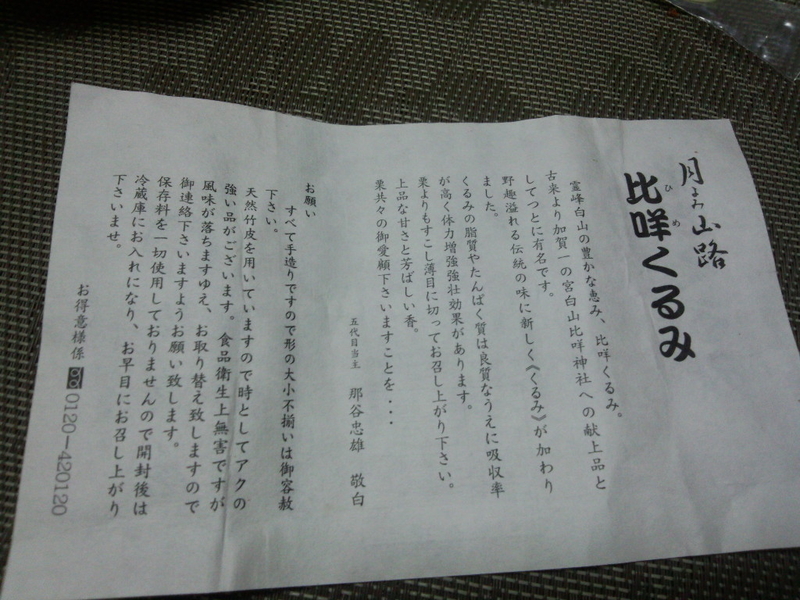 月よみ山路
比咩くるみ
ひめ
霊峰白山の豊かな恵み、比咩くるみ。
古来より加賀一の宮白山比咩神社への献上品と
してつとに有名です。
野趣溢れる伝統の味に新しく《くるみ》が加わり
ました。
くるみの脂質やたんぱく質は良質なうえに吸収率
が高く体力増強強壮効果があります。
栗よりもすこし薄目に切ってお召し上がり下さい。
上品な甘さと芳ばしい香。
栗共々の御愛顧下さいますことを・・・
五代目当主 那谷忠雄 敬白
お願い
すべて手造りですので形の大小不揃いは御容赦
下さい。
天然竹皮を用いていますので時としてアクの
強い品がございます。食品衛生上無害ですが
風味が落ちますゆえ、お取り替え致しますので
御連絡下さいますようお願い致します。
保存料を一切使用しておりませんので開封後は
冷蔵庫にお入れになり、お早目にお召し上がり
下さいませ。
お得意様係 0120-420120